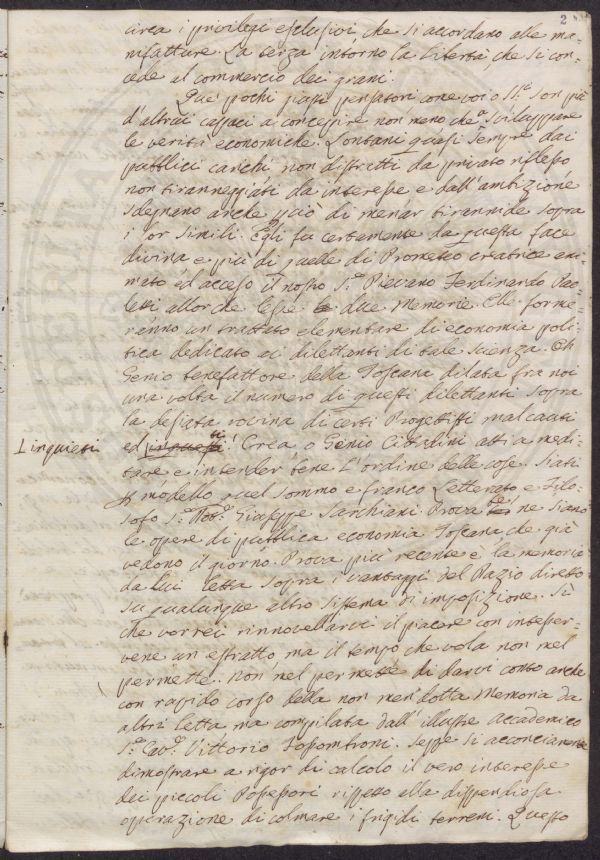 2
circa i privilegi esclusivi, che si accordano alle ma-
nifatture. La terza intorno la Libertà, che si con-
cede al commercio dei grani.
Que' pochi pensatori come voi o SS.ri son più
d'altrui capaci a concepire non meno che a sviluppare
le verità economiche. Lontani quasi sempre dai
pubblici carichi, non distratti da privato riflesso
non tiranneggiati da interesse e dall'ambizione
sdegnano anche di menar tirannide sopra
i lor simili. Egli fu certamente da questa face
divina e più di quelle di Prometeo creatrice ani-
mato ed acceso il nostro S.r Pievano Ferdinando Pao-
letti allorchè lesse le due Memorie. Che forme-
ranno un trattato elementare di economia poli-
tica dedicato ai dilettanti di tale scienza. Oh
Genio benefattore della Toscana dilata fra noi
una volta il numero di questi dilettanti sopra
la desiata rovina di certi Progettisti mal cauti
L'inquieti
ed inquieti! Crea o Genio Cittadini atti a medi-
tare e intender bene l'ordine delle cose. Siati
modello quel sommo e franco Letterato e Filo-
sofo S.r Giuseppe Sarchiani. Prova te ne siano
le opere di pubblica economia Toscana che già
vedono il giorno. Prova più recente è la memoria
da Lui letta sopra i vantaggi del Dazio diretto
su qualunque altro sistema di imposizione. Sì
che vorrei rinnovellarvi il piacere con intesser-
vene un estratto, ma il tempo che vola non mel
permette. Non mel permette di darvi conto anche
con rapido corso della non men dotta Memoria da
altri letta ma compilata dall'illustre accademico
S.r Cav.r Vittorio Fossombroni. Seppe sì acconciamente
dimostrare a rigor di calcolo il vero interesse
dei piccoli Possessori rispetto alla dispendiosa
operazione di colmare i frigidi terreni. Questo